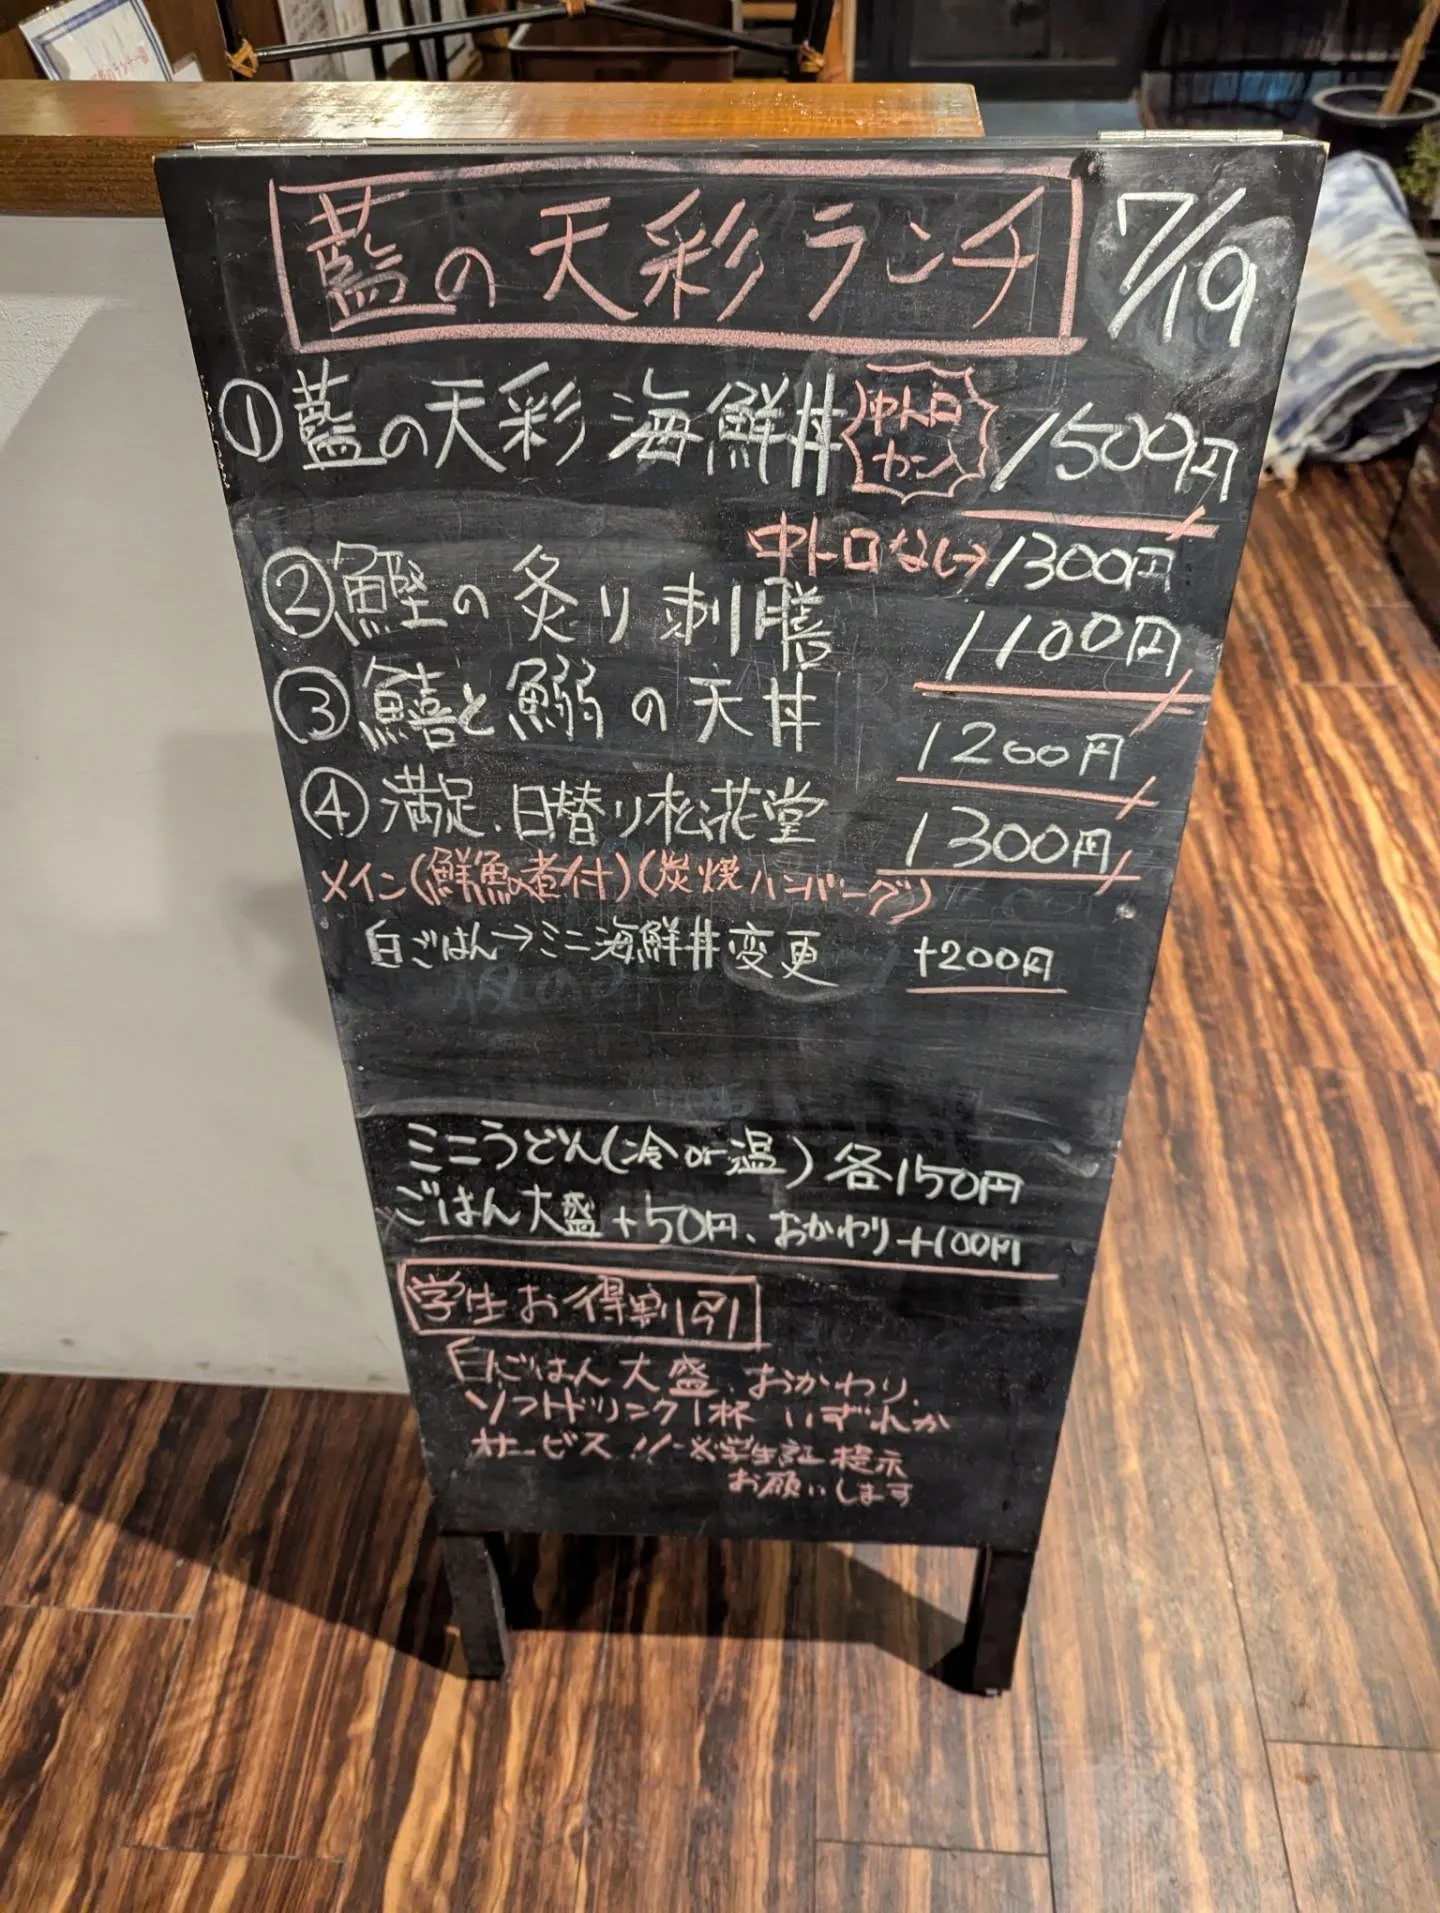 藍の天彩ランチ 7/19
①藍の天彩 海鮮丼 中トロ カン 1500円
中トロなし→1300円
②鰹の炙り刺膳 1100円
③鱚と鰯の天丼 1200円
④満足、日替り松花堂 1300円
メイン(鮮魚の煮付)(炭焼ハンバーグ)
白ごはん→ミニ海鮮丼変更 +200円
ミニうどん(冷or温)各150円
ごはん大盛+50円、おかわり+100円
学生お得割引
白ごはん大盛、おかわり、
ソフトドリンク1杯 いずれか
サービス!! ※学生証提示
お願いします